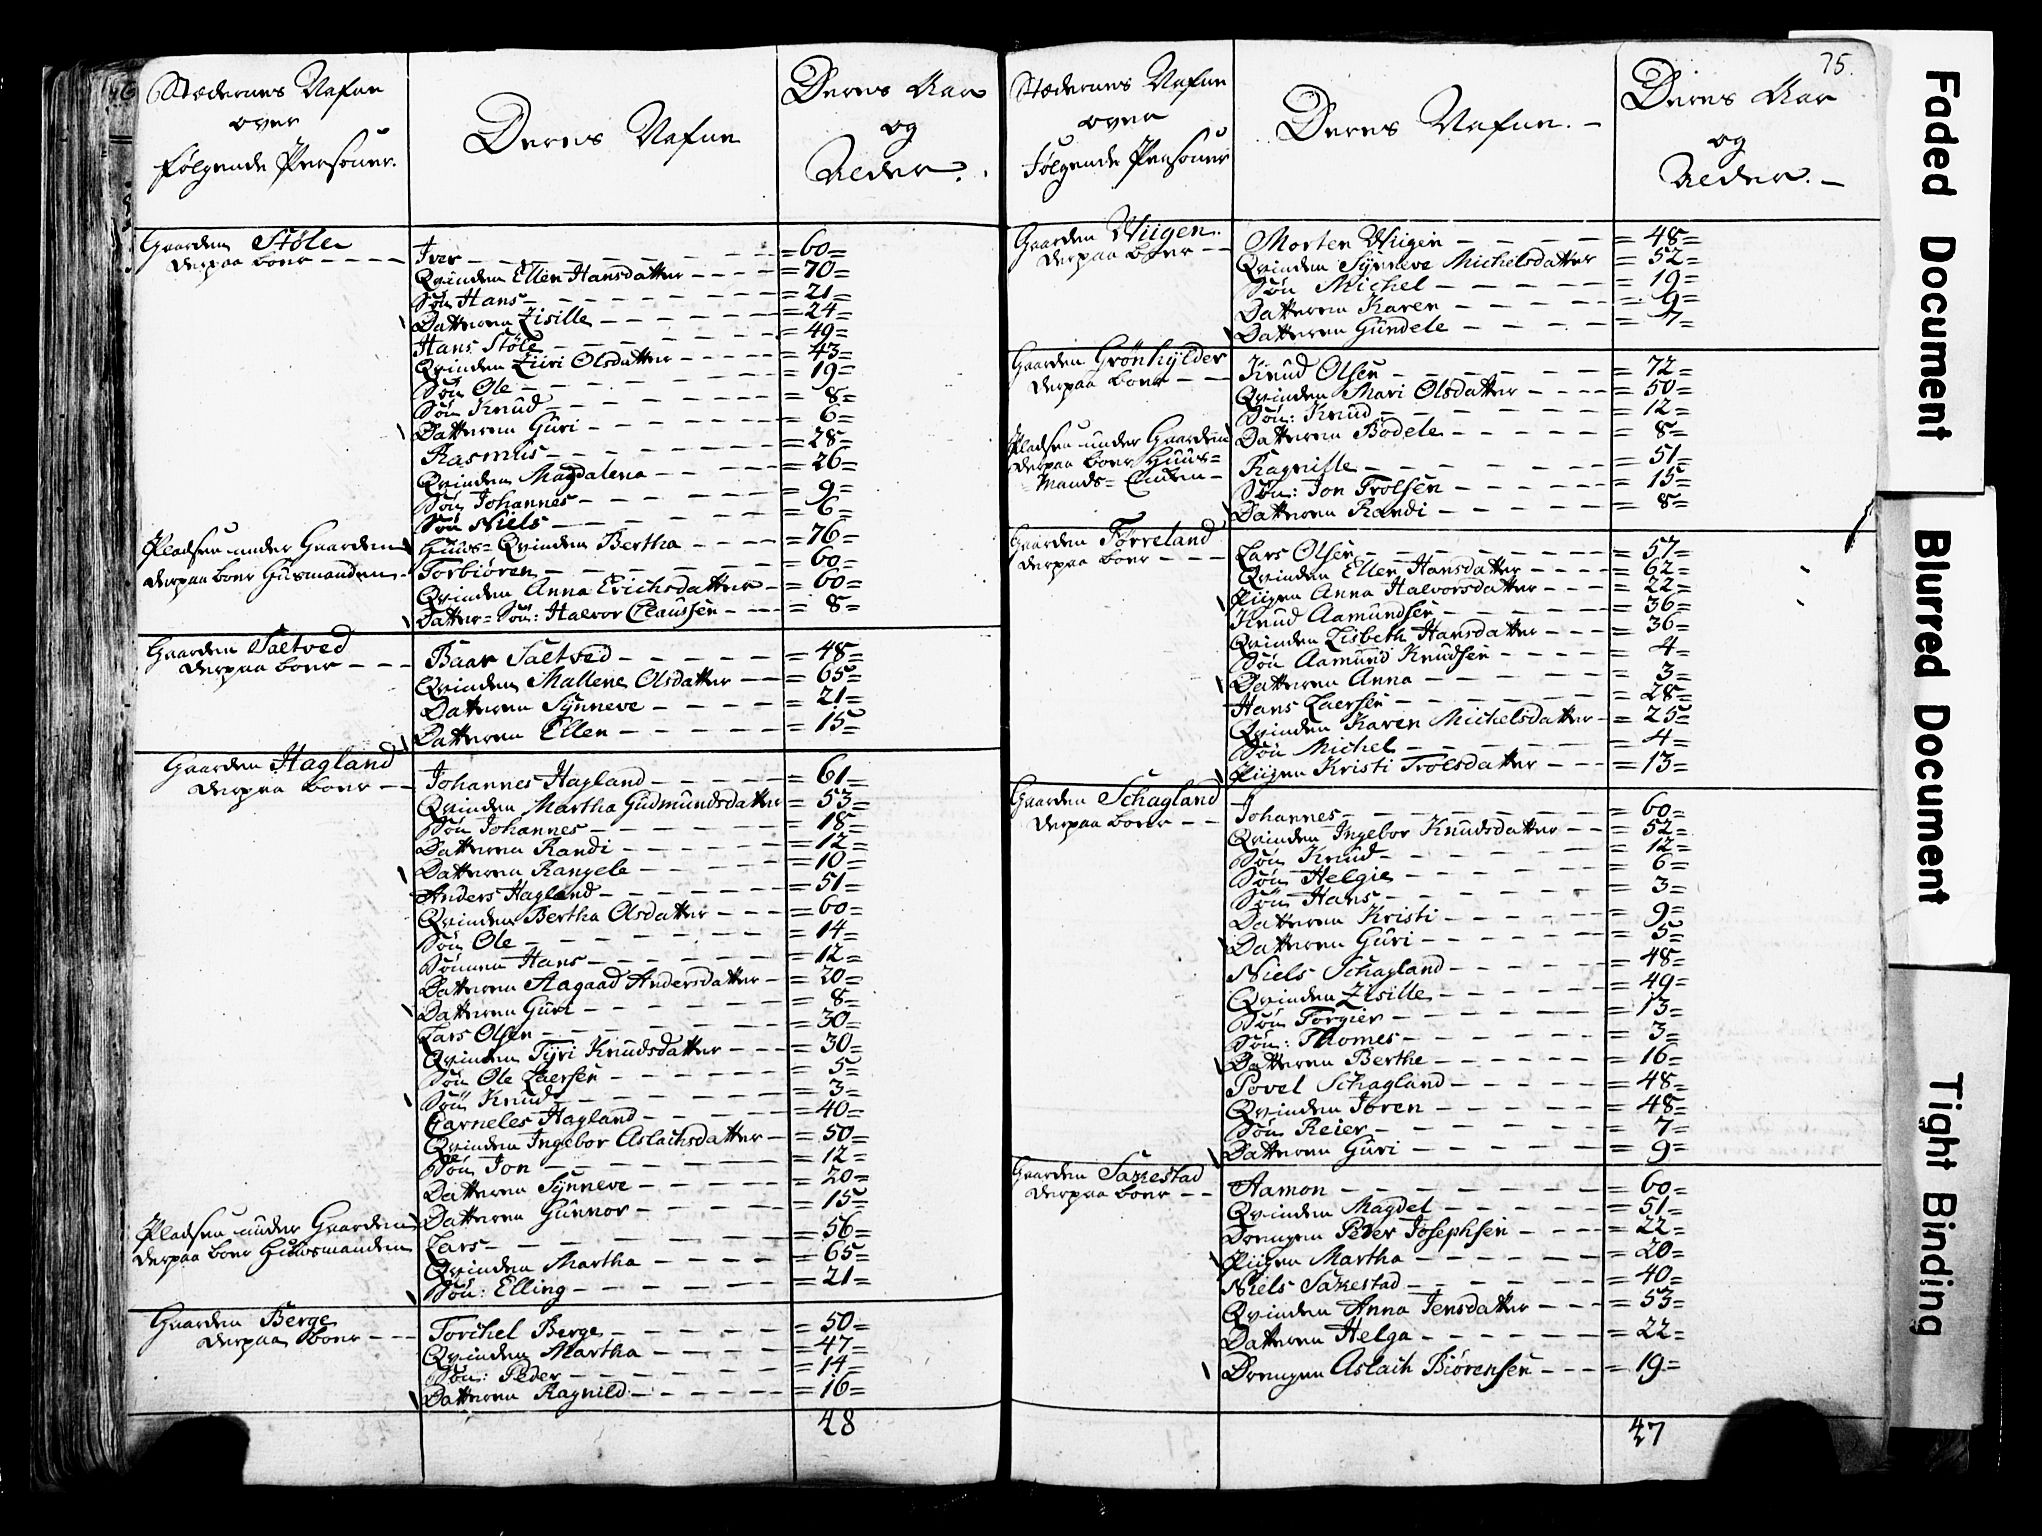 Stædernes Nafne
over
følgende Personer.
Deres Nafne
Deres Aar
og
Alder.
Gaarden Støle
derpaa boer - - - -
Iver - - - = 60 =
Qvinden Ellen Hansdatter - - - = 70 =
Søn Hans - - - = 21 =
Datteren Zisille - - - = 24 =
Hans Støle - - - = 49 =
Qvinden Ziiri Olsdatter - - - = 43 =
Søn Ole - - - = 19 =
Søn Knud - - - = 8 =
Datteren Guri - - - = 6 =
Rasmus - - - = 28 =
Qvinden Magdalena - - - = 26 =
Søn Johannes - - - = 9 =
Søn Niels - - - = 6 =
Pladsen under Gaarden
derpaa boer Husmanden -
Huus= Qvinden Bertha - - - = 76 =
Torbiören - - - = 60 =
Qvinden Anna Erichsdatter - = 60 =
Datter= Søn: Halvor Claussen - - - = 8 =
Gaarden Saltved
derpaa boer - - -
Baar Saltved - - - = 48 =
Qvinden Mallene Olsdatter - - = 65 =
Datteren Synneve - - - = 21 =
Datteren Ellen - - - = 15 =
Gaarden Hagland
derpaa boer - -
Johannes Hagland - - - = 61 =
Qvinden Martha Gudmundsdatter = 53 =
Søn Johannes - - - = 18 =
Datteren Randi - - - = 12 =
Datteren Rangele - - - = 10 =
Anders Hagland - - - = 51 =
Qvinden Bertha Olsdatter - - - = 60 =
Søn Ole - - - = 14 =
Sønnen Hans - - - = 12 =
Datteren Aagaad Andersdatter - = 20 =
Datteren Guri - - - = 8 =
Lars Olsen - - - = 30 =
Qvinden Tyri Knudsdatter - - - = 30 =
Søn Ole Laersen - - - = 5 =
Søn Knud - - - = 3 =
Garneles Hagland - - - = 40 =
Qvinden Ingebor Aslachsdatter - = 50 =
Søn Jon - - - = 12 =
Datteren Synneve - - - = 20 =
Datteren Gunnor - - - = 15 =
Pladsen under Gaarden
derpaa boer Huusmanden
Lars - - - = 56 =
Qvinden Martha - - - = 65 =
Søn: Elling - - - = 21 =
Gaarden Berge
derpaa boer - - -
Torchel Berge - - - = 50 =
Qvinden Martha - - - = 47 =
Søn: Peder - - - = 14 =
Datteren Ragnild - - - = 16 =
48
75.
Stædernes Nafne
over
følgende Personer
Deres Nafne. -
Deres Aar
og
Alder. -
Gaarden Wiigen.
derpaa boer - -
Morten Wiigen - - - = 48 =
Qvinden Synneve Michelsdatter = 52 =
Søn Michel - - - = 19 =
Datteren Karen - - - = 9 =
Datteren Gundele - - - = 7 =
Gaarden Grönhylder
derpaa boer - -
Knud Olsen - - - = 72 =
Qvinden Mari Olsdatter - - - = 50 =
Søn: Knud - - - = 12 =
Datteren Bodele - - - = 8 =
Pladsen under Gaarden
derpaa boer Huus=
Mands= Enken -
Ragnille - - - = 51 =
Søn: Jon Trolsen - - - = 15 =
Datteren Randi - - - = 8 =
Gaarden Förreland
derpaa boer - - -
Lars Olsen - - - = 57 =
Qvinden Ellen Hansdatter - - - = 62 =
Piigen Anna Halvorsdatter - - - = 22 =
Knud Aamundsen - - - = 36 =
Qvinden Lisbeth Hansdatter - - - = 36 =
Søn Aamund Knudsen - - - = 4 =
Datteren Anna - - - = 3 =
Hans Laersen - - - = 28 =
Qvinden Karen Michelsdatter - = 25 =
Søn Michel - - - = 4 =
Piigen Kristi Trolsdatter - - - = 13 =
Gaarden Schagland
derpaa boer - -
Johannes - - - = 60 =
Qvinden Ingebor Knudsdatter - - = 52 =
Søn Knud - - - = 12 =
Søn Helgie - - - = 6 =
Søn Hans - - - = 3 =
Datteren Kristi - - - = 9 =
Datteren Guri - - - = 5 =
Niels Schagland - - - = 48 =
Qvinden Zisille - - - = 49 =
Søn Torgier - - - = 13 =
Søn: Thomes - - - = 3 =
Datteren Berthe - - - = 16 =
Povel Schagland - - - = 48 =
Qvinden Joren - - - = 48 =
Søn Reier - - - = 7 =
Datteren Guri - - - = 9 =
Gaarden Saxestad
derpaa boer - -
Aamon - - - = 60 =
Qvinden Magdel - - - = 51 =
Drengen Peder Josephsen - - - = 22 =
Piigen Martha - - - = 20 =
Niels Saxestad - - - = 40 =
Qvinden Anna Jensdatter - - - = 53 =
Datteren Helga - - - = 22 =
Drengen Aslach Biörensen - - - = 19 =
47
Faded Document
Blurred Document
Tight Binding